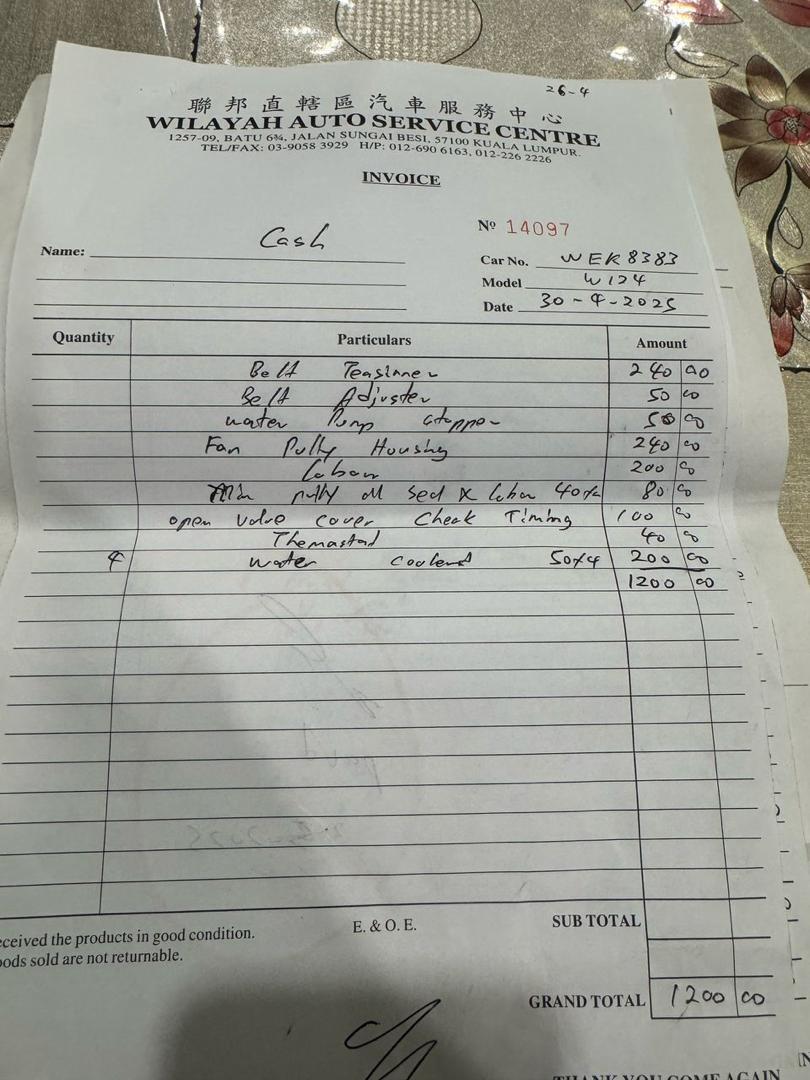 26-4
聯邦直轄區汽車服務中心
WILAYAH AUTO SERVICE CENTRE
1257-09, BATU 6¾, JALAN SUNGAI BESI, 57100 KUALA LUMPUR.
TEL/FAX: 03-9058 3929 H/P: 012-690 6163, 012-226 2226
INVOICE
Nº 14097
Name: Cash
Car No. WEK8383
Model W124
Date 30-4-2025
Quantity Particulars Amount
Belt Teasinner 240 00
Belt Adjuster 50 00
water Pump stopper 50 00
Fan Pully Housing 240 00
Labour 200 00
pully oil seal x labour 80 00
open valve cover Cheak Timing 100 00
Themastad 40 00
4 water coolend 50x4 200 00
1200 00
eceived the products in good condition.
oods sold are not returnable.
E. & O. E.
SUB TOTAL
GRAND TOTAL 1200 00
THANK YOU COME AGAIN